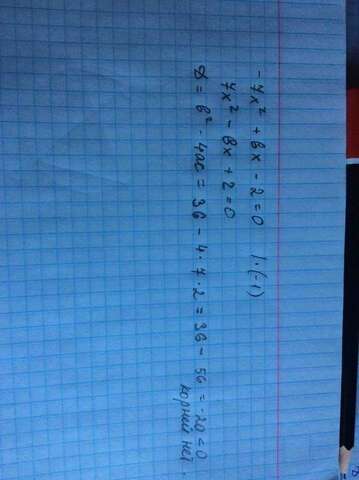 -7x² + 6x - 2 = 0 | · (-1)
7x² - 6x + 2 = 0
D = b² - 4ac = 36 - 4 · 7 · 2 = 36 - 56 = -20 < 0
корней нет